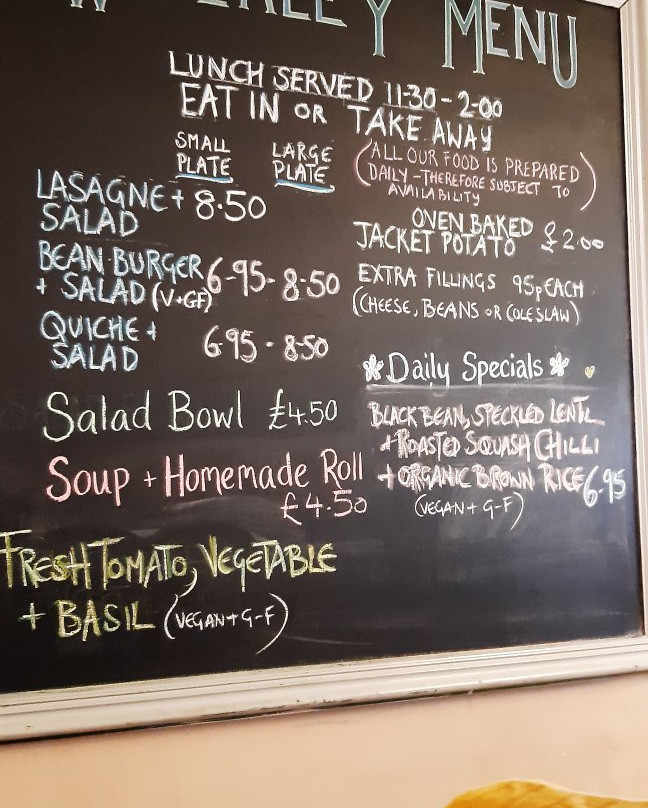 MENU
LUNCH SERVED 11-30 - 2-00
EAT IN OR TAKE AWAY
SMALL PLATE
LARGE PLATE
(ALL OUR FOOD IS PREPARED
DAILY - THEREFORE SUBJECT TO
AVAILABILITY)
LASAGNE + SALAD 8.50
BEAN BURGER 6-95 - 8-50
+ SALAD (V+GF)
QUICHE +
SALAD 6.95 - 8.50
Salad Bowl £4.50
Soup + Homemade Roll
£4.50
FRESH TOMATO, VEGETABLE
+ BASIL (VEGAN + G-F)
OVEN BAKED
JACKET POTATO £2.00
EXTRA FILLINGS 95p EACH
(CHEESE, BEANS OR COLESLAW)
Daily Specials
BLACK BEAN, SPECKLED LENTL
+ ROASTED SQUASH CHILLI
+ ORGANIC BROWN RICE 6.95
(VEGAN + G-F)